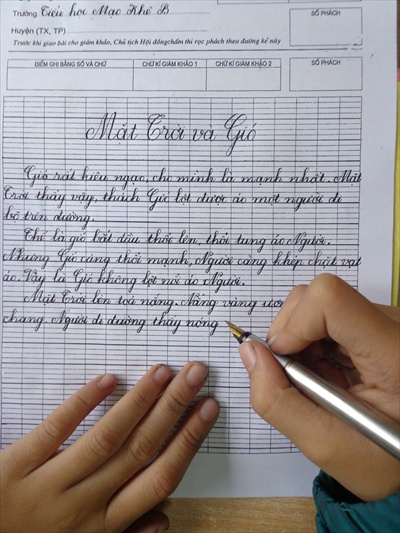 Trường Tiểu học Mạo Khê B
Huyện (TX, TP)
Trước khi giao bài cho giám khảo, Chủ tịch Hội đồng chấm thi rọc phách theo đường kẻ này
SỐ PHÁCH
ĐIỂM GHI BẰNG SỐ VÀ CHỮ
CHỮ KÍ GIÁM KHẢO 1
CHỮ KÍ GIÁM KHẢO 2
SỐ PHÁCH
Mặt Trời và Gió
Gió rất kiêu ngạo, cho mình là mạnh nhất. Mặt
Trời thấy vậy, thách Gió lột được áo một người đi
bộ trên đường.
Thế là gió bắt đầu thổi lên, thổi tung áo Người.
Nhưng Gió càng thổi mạnh, Người càng khép chặt vạt
áo. Vậy là Gió không lột nổi áo Người.
Mặt Trời lên toả nắng. Nắng vàng
chang. Người đi đường thấy nóng